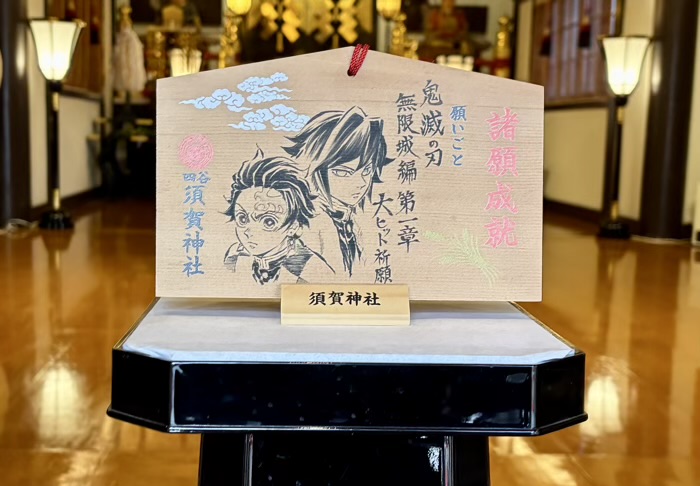 諸願成就
願いごと
鬼滅の刃
無限城編 第一章
大ヒット祈願
四谷
須賀神社
須賀神社